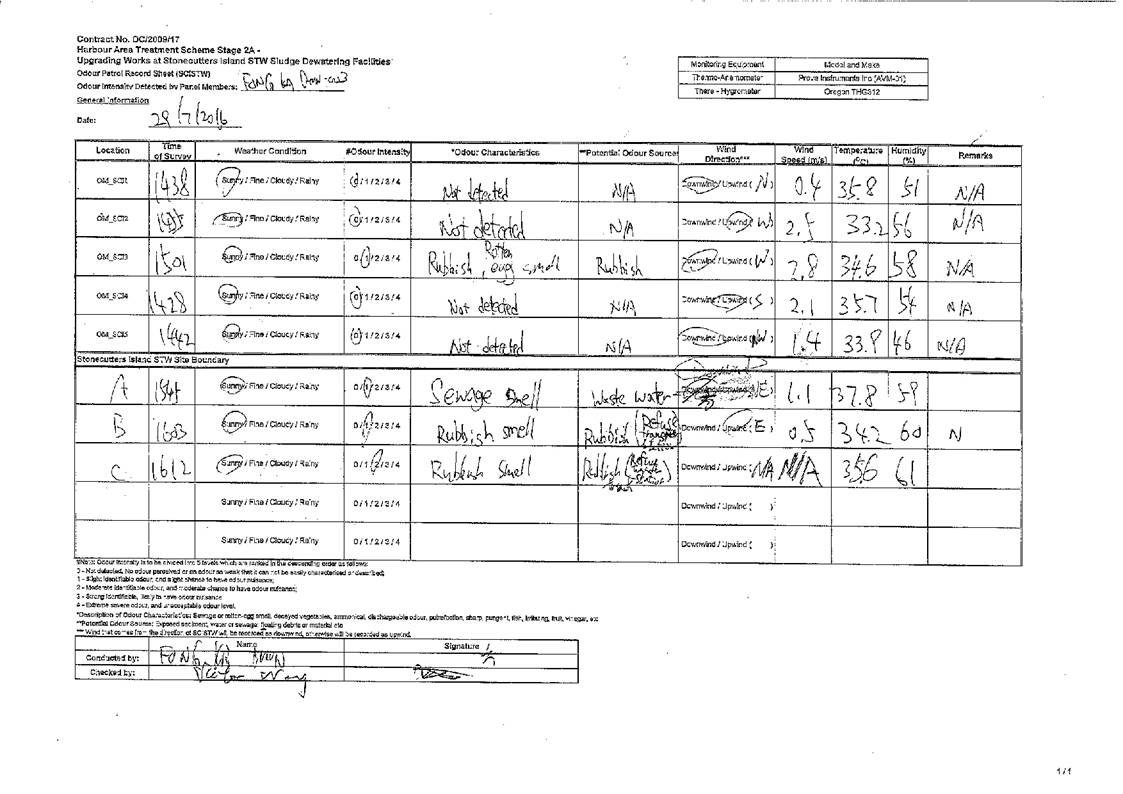 Contract No. DC/2009/17
Harbour Area Treatment Scheme Stage 2A -
Upgrading Works at Stonecutters Island STW Sludge Dewatering Facilities
Odour Patrol Record Sheet (SCISTW)
Odour Intensity Detected by Panel Members: FONG
General Information
Date: 29/7/2016
Monitoring Equipment Model and Make
Thermo-Anemometer Prova Instruments Inc (AVM-01)
Thero - Hygrometer Oregon THG312
Location Time of Survey Weather Condition #Odour Intensity *Odour Characteristics **Potential Odour Source Wind Direction*** Wind Speed (m/s) Temperature (°C) Humidity (%) Remarks
OM_SCI1 1438 Sunny / Fine / Cloudy / Rainy 0/1/2/3/4 Not detected N/A Downwind / Upwind (N) 0.4 35.8 51 N/A
OM_SCI2 Sunny / Fine / Cloudy / Rainy 0/1/2/3/4 Not detected N/A Downwind / Upwind ( W) 2.5 33.2 56 N/A
OM_SCI3 1501 Sunny / Fine / Cloudy / Rainy 0/1/2/3/4 Rubbish, Rotten egg smell Rubbish Downwind / Upwind (W) 2.8 34.6 58 N/A
OM_SCI4 1428 Sunny / Fine / Cloudy / Rainy 0/1/2/3/4 Not detected N/A Downwind / Upwind (S ) 2.1 35.7 54 N/A
OM_SCI5 1442 Sunny / Fine / Cloudy / Rainy 0/1/2/3/4 Not detected N/A Downwind / Upwind (NW ) 1.4 33.8 46 N/A
Stonecutters Island STW Site Boundary
A 1545 Sunny / Fine / Cloudy / Rainy 0/1/2/3/4 Sewage Smell Waste water NE) 1.1 37.8 59
B 1603 Sunny / Fine / Cloudy / Rainy 0/1/2/3/4 Rubbish smell Rubbish (Refuse Transfer Downwind / Upwind (E ) 0.5 34.2 60 N
C 1612 Sunny / Fine / Cloudy / Rainy 0/1/2/3/4 Rubbish Smell Rubbish (Refuse Downwind / Upwind ( N/A N/A 35.6 61
Sunny / Fine / Cloudy / Rainy 0/1/2/3/4 Downwind / Upwind ( )
Sunny / Fine / Cloudy / Rainy 0/1/2/3/4 Downwind / Upwind ( )
#Note: Odour Intensity is to be divided into 5 levels which are ranked in the descending order as follows:
0 - Not detected. No odour perceived or an odour so weak that it can not be easily characterised or described;
1 - Slight identifiable odour, and slight chance to have odour nuisance;
2 - Moderate identifiable odour, and moderate chance to have odour nuisance;
3 - Strong identifiable, likely to have odour nuisance
4 - Extreme severe odour, and unacceptable odour level.
*Description of Odour Characteristics: Sewage or rotten-egg smell, decayed vegetables, ammonical, dischargeable odour, putrefaction, sharp, pungent, fish, irritating, fruit, vinegar, etc
**Potential Odour Source: Exposed sediment, water or sewage, floating debris or material etc
*** Wind that comes from the direction of SCISTW will be recorded as downwind, otherwise will be recorded as upwind.
Name Signature
Conducted by: FONG
Checked by:
1 / 1